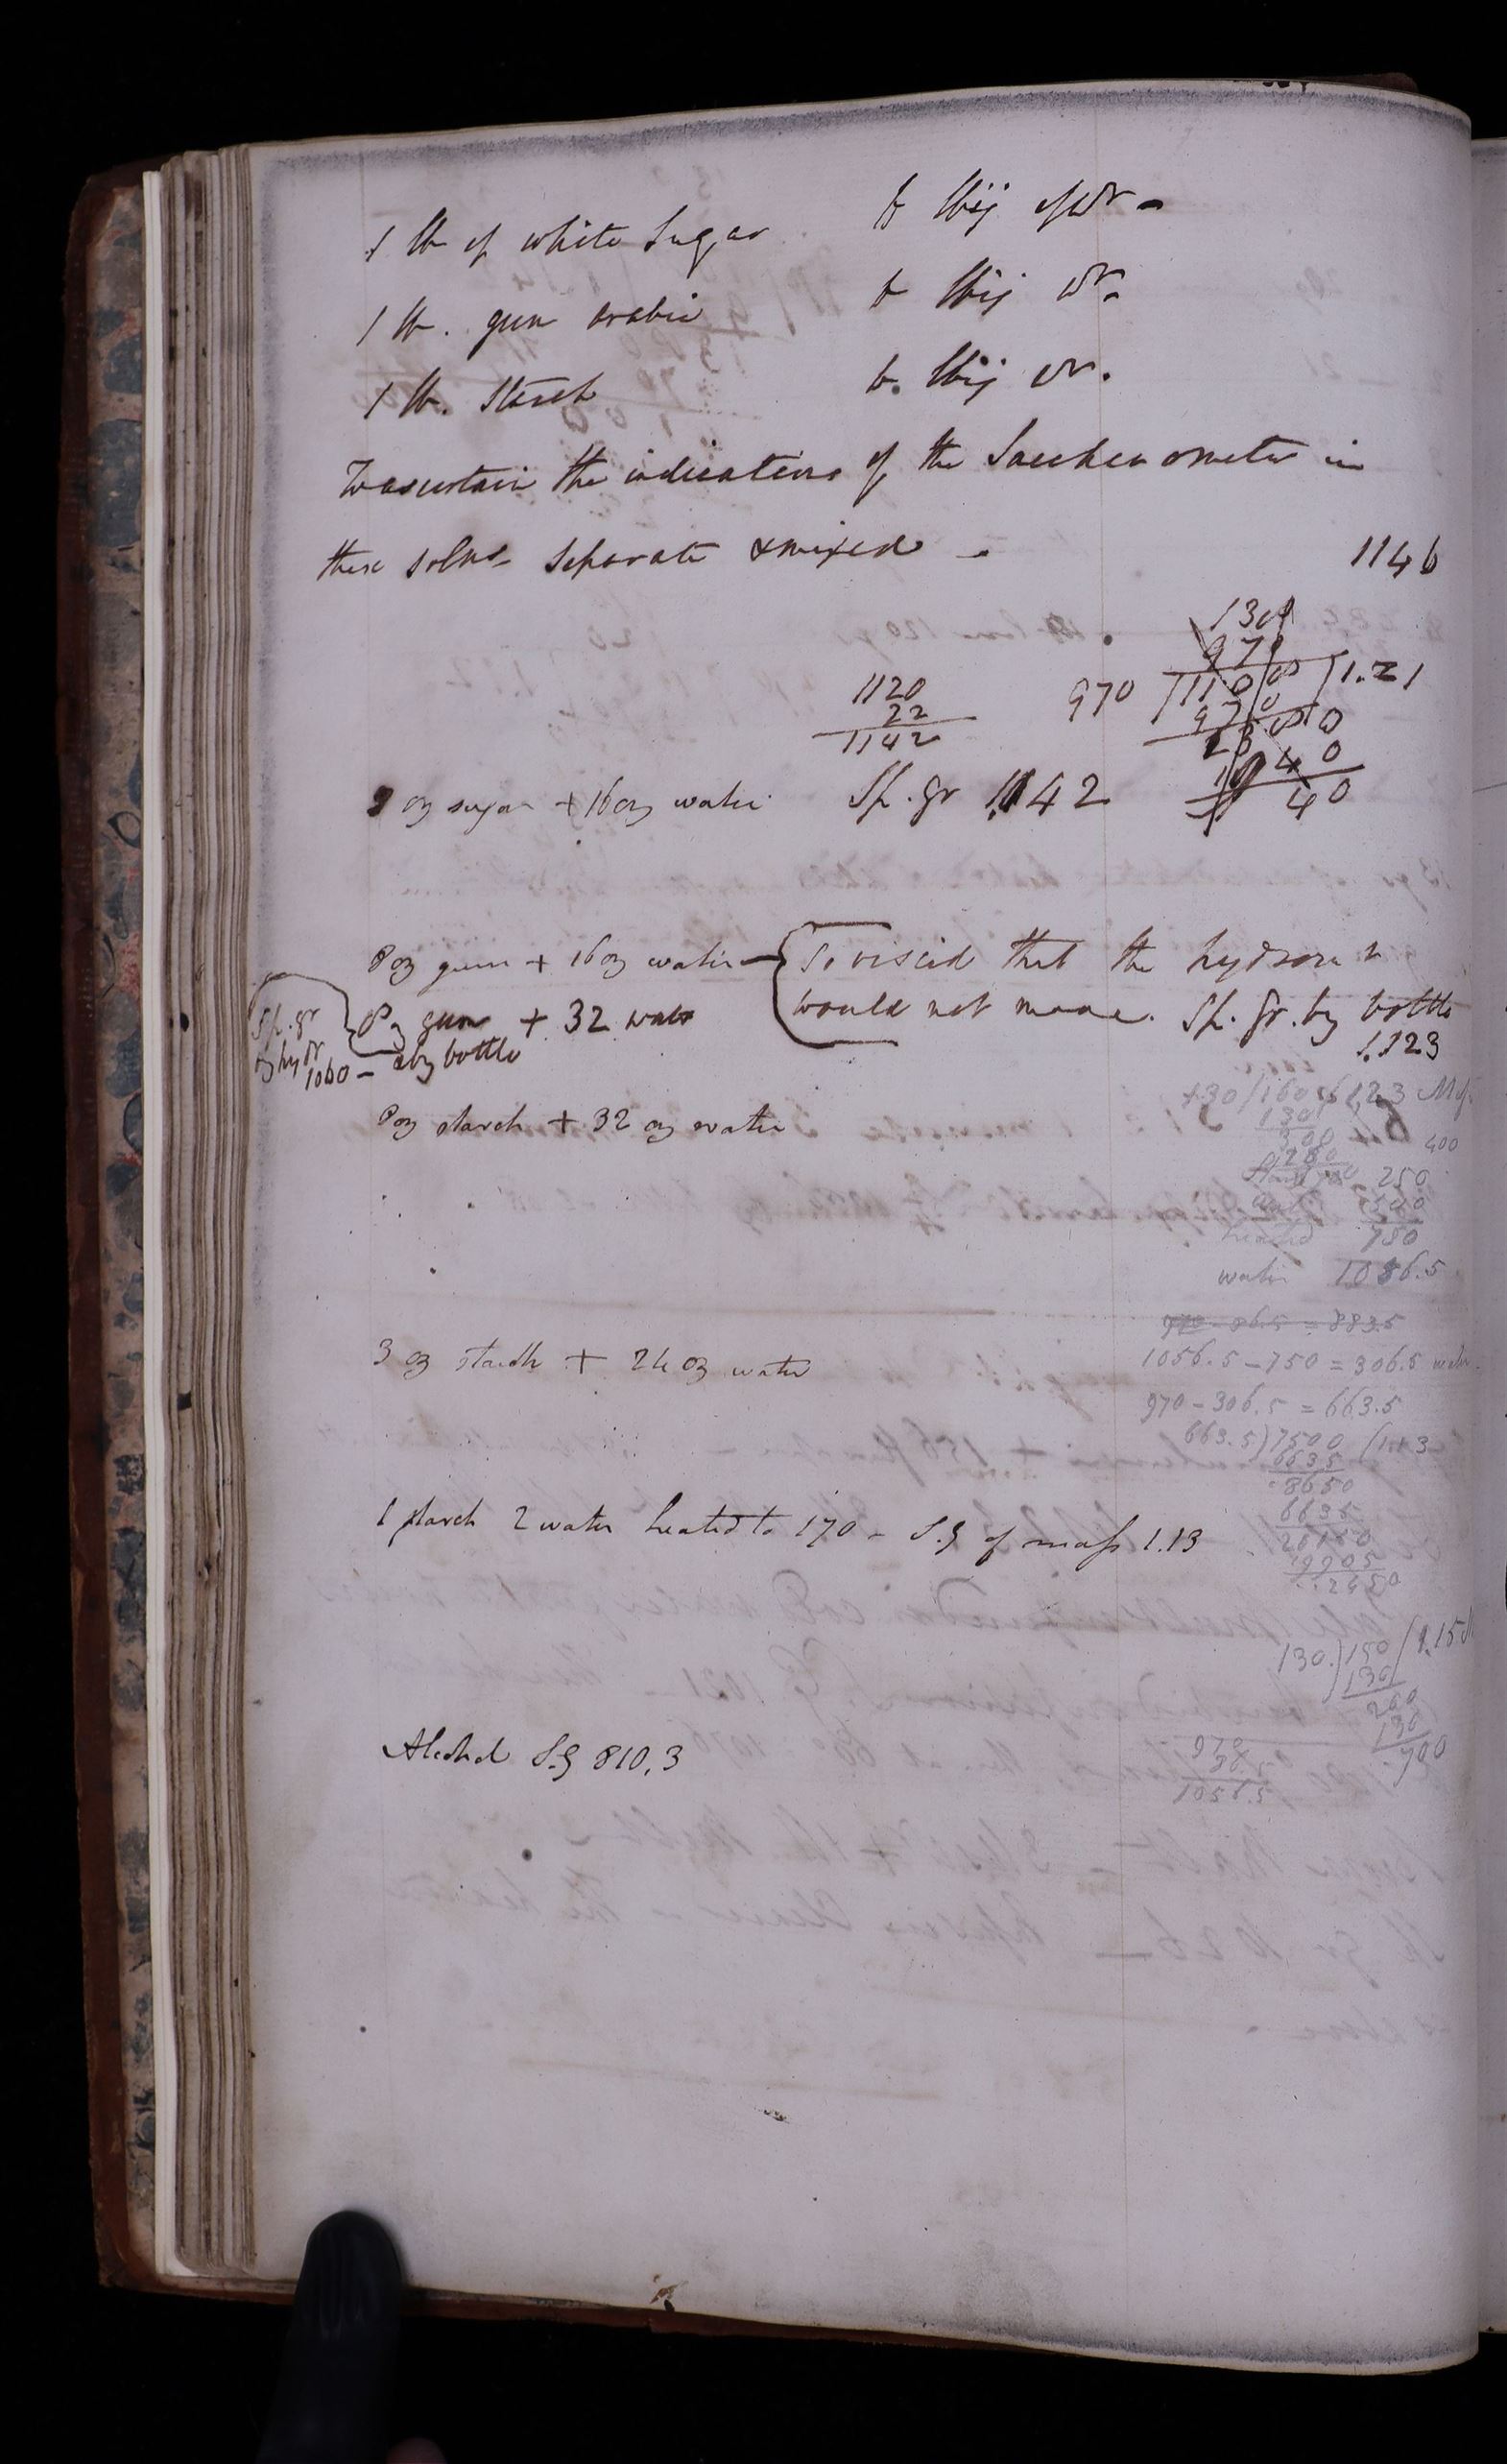 1 lb of white Sugar to lbij of Wr -
1 lb. gum arabic to lbij Wr.
1 lb. Starch to lbij Wr.
To ascertain the indications of the Saccharometer in
these solns- separate & mixed -
1146
130
970
1120
22
1142
970 1100 1.21
970
40
40
8 oz sugar + 16 oz water Sp. gr 1142
8 oz gum + 16 oz water — So viscid that the hydromr
would not move. Sp. Gr. by bottle
1.123
Sp. gr
by hydr
1060 -
8 oz gum + 32 water
by bottle
8 oz starch + 32 oz water
130
300
400
250
500
heated 750
water 1056.5
970 - 86.5 = 883.5
3 oz starch + 24 oz water
1056.5 - 750 = 306.5 water
970 - 306.5 = 663.5
663.5) 7500 (1.13
6635
8650
6635
20150
19905
2450
1 starch 2 water heated to 170 - S.G of mass 1.13
130.) 150 (1.15
130
200
130
700
970
86.5
1056.5
Alcohol S.G 810.3